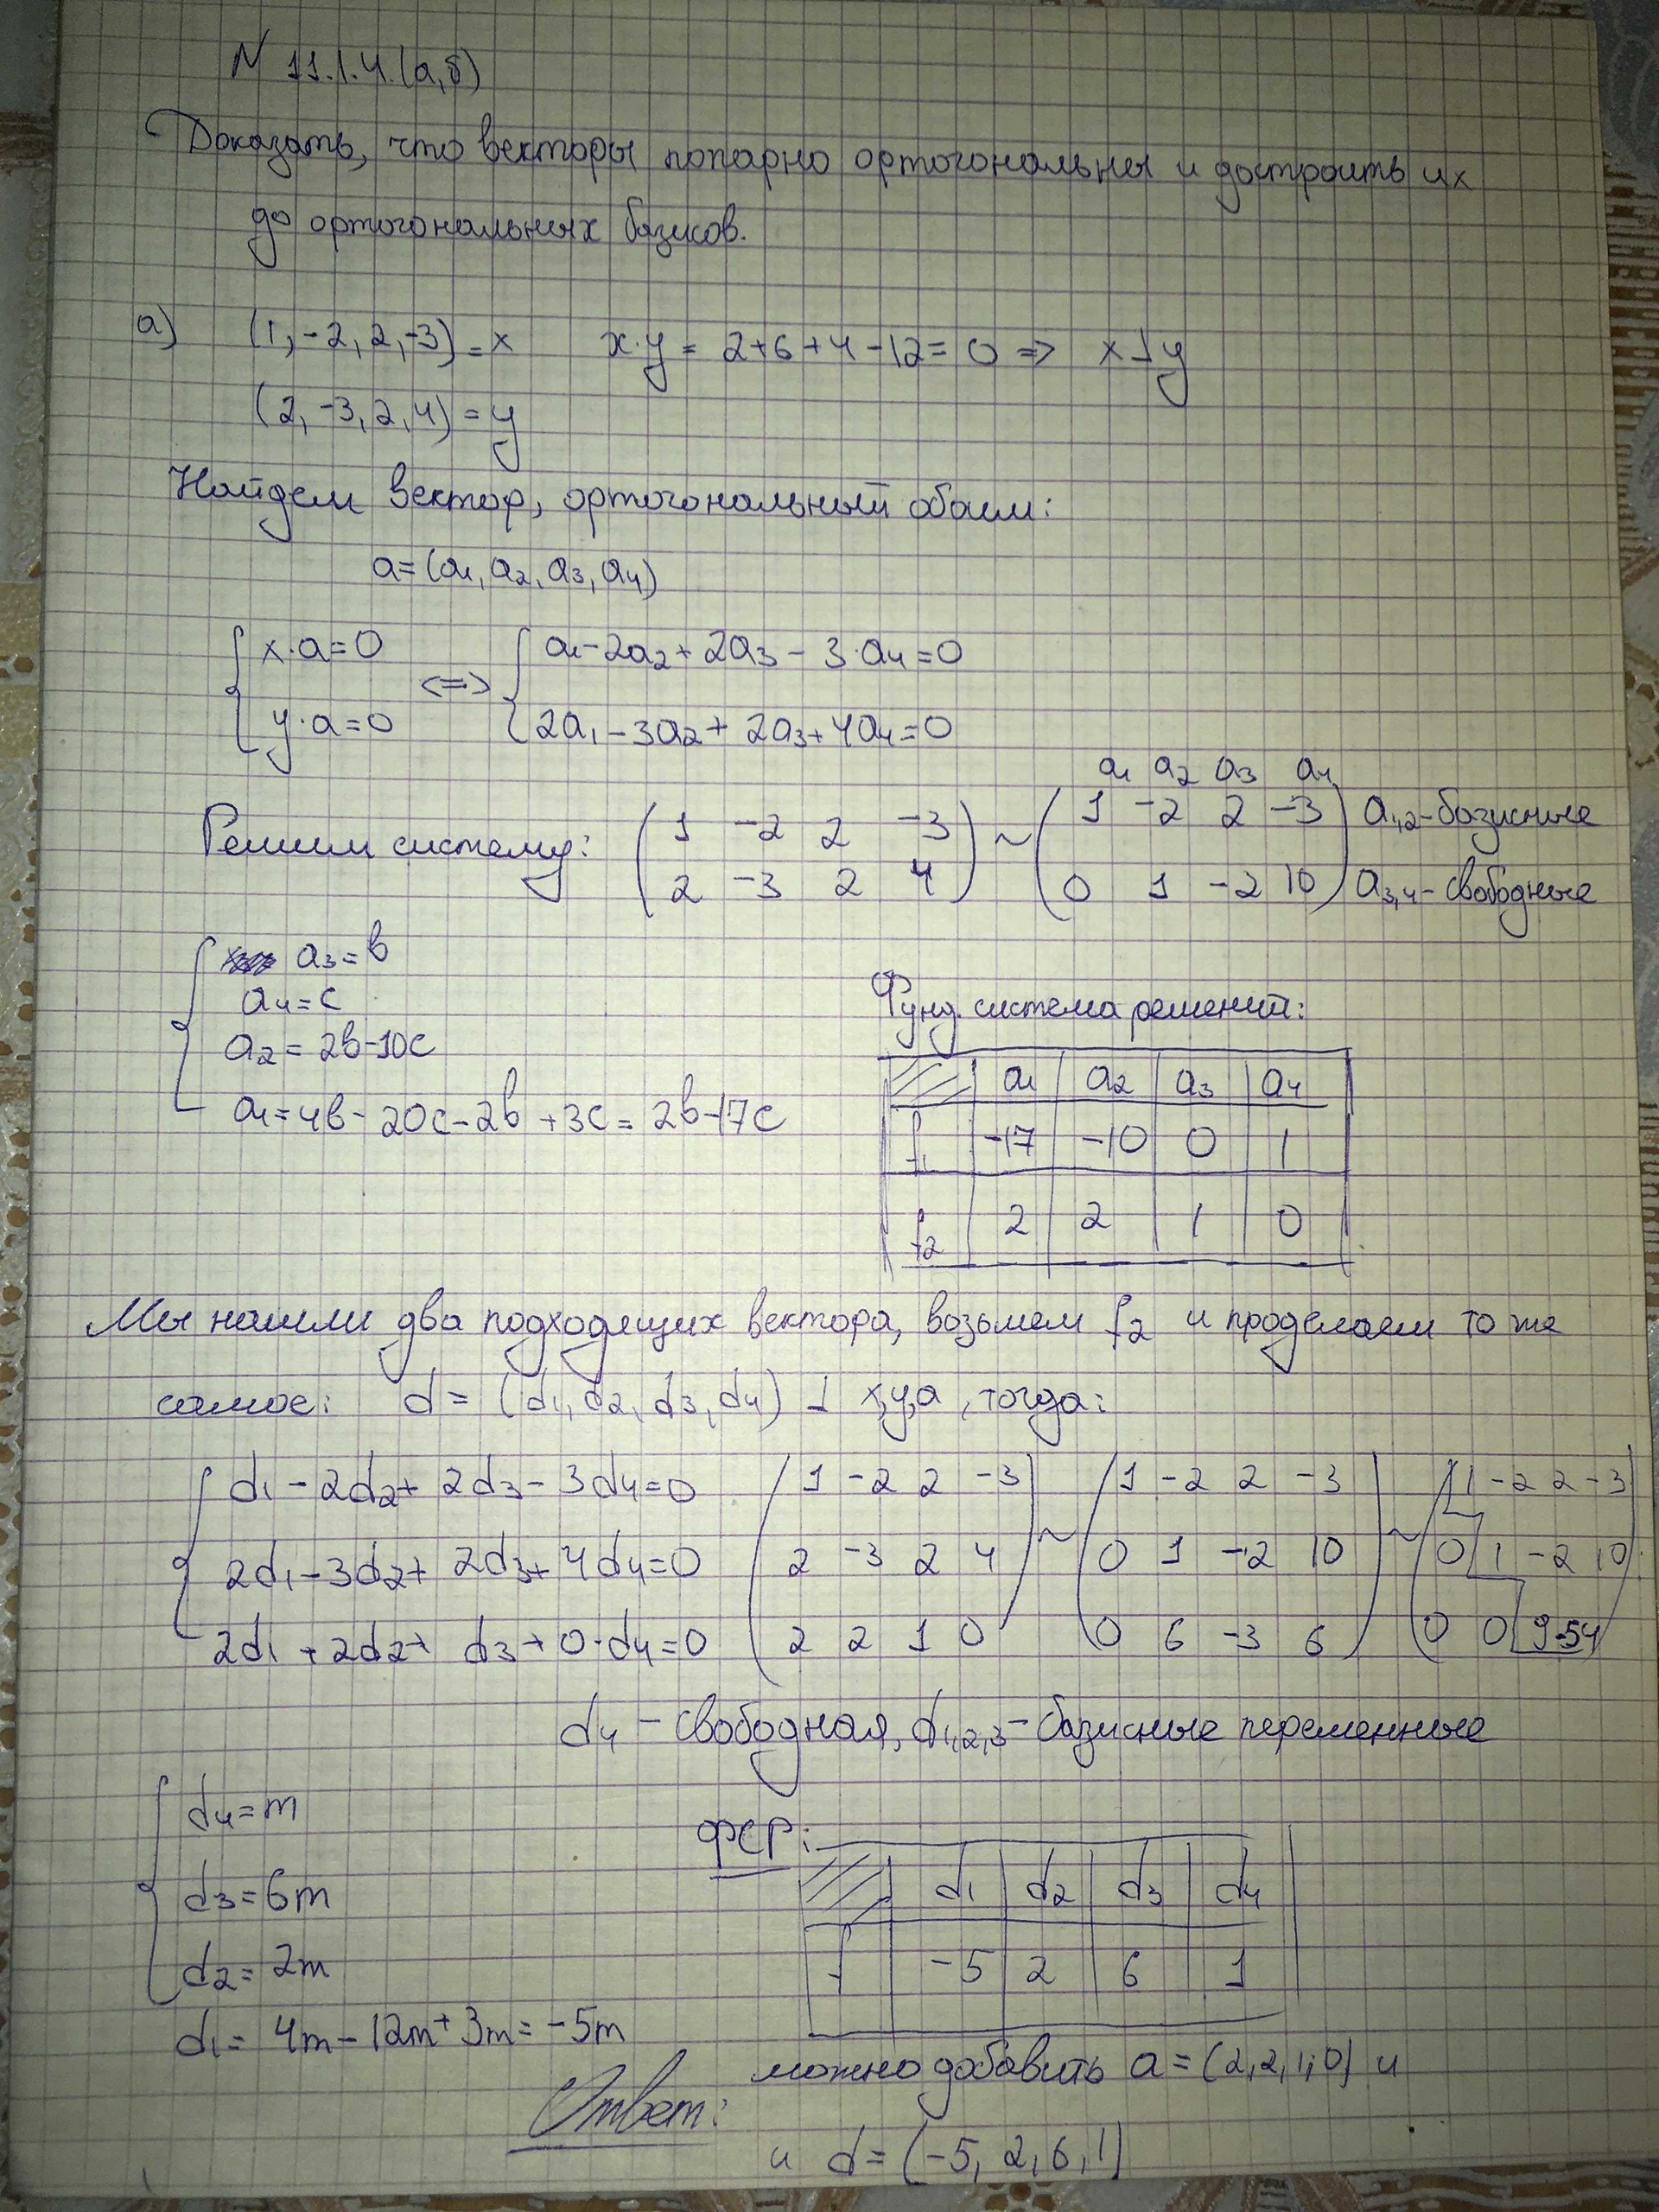 N 11.1.4.(а,б)
Доказать, что векторы попарно ортогональны и достроить их
до ортогональных базисов.
а) (1,-2,2,-3)=x x·y = 2+6+4-12=0 => x⊥y
(2,-3,2,4)=y
Найдем вектор, ортогональный обоим:
a=(a₁,a₂,a₃,a₄)
{ x·a=0 <=> { a₁-2a₂+2a₃-3·a₄=0
y·a=0 2a₁-3a₂+2a₃+4a₄=0
a₁ a₂ a₃ a₄
Решим систему: ( 1 -2 2 -3 ) ~ ( 1 -2 2 -3 ) a₁,₂-базисные
2 -3 2 4 0 1 -2 10 a₃,₄-свободные
{ a₃=b
a₄=c
a₂=2b-10c
a₁=4b-20c-2b+3c=2b-17c
Фунд. система решений:
a₁ a₂ a₃ a₄
f₁ -17 -10 0 1
f₂ 2 2 1 0
Мы нашли два подходящих вектора, возьмем f₂ и проделаем то же
самое: d = (d₁,d₂,d₃,d₄) ⊥ x,y,a, тогда:
{ d₁-2d₂+2d₃-3d₄=0 ( 1 -2 2 -3 ) ~ ( 1 -2 2 -3 ) ~ ( 1 -2 2 -3 )
2d₁-3d₂+2d₃+4d₄=0 2 -3 2 4 0 1 -2 10 0 1 -2 10
2d₁+2d₂+d₃+0·d₄=0 2 2 1 0 0 6 -3 6 0 0 9 -54
d₄ - свободная, d₁,₂,₃-базисные переменные
{ d₄=m
d₃=6m
d₂=2m
d₁=4m-12m+3m=-5m
ФСР:
d₁ d₂ d₃ d₄
f -5 2 6 1
Ответ: можно добавить a=(2,2,1,0) и
и d=(-5,2,6,1)